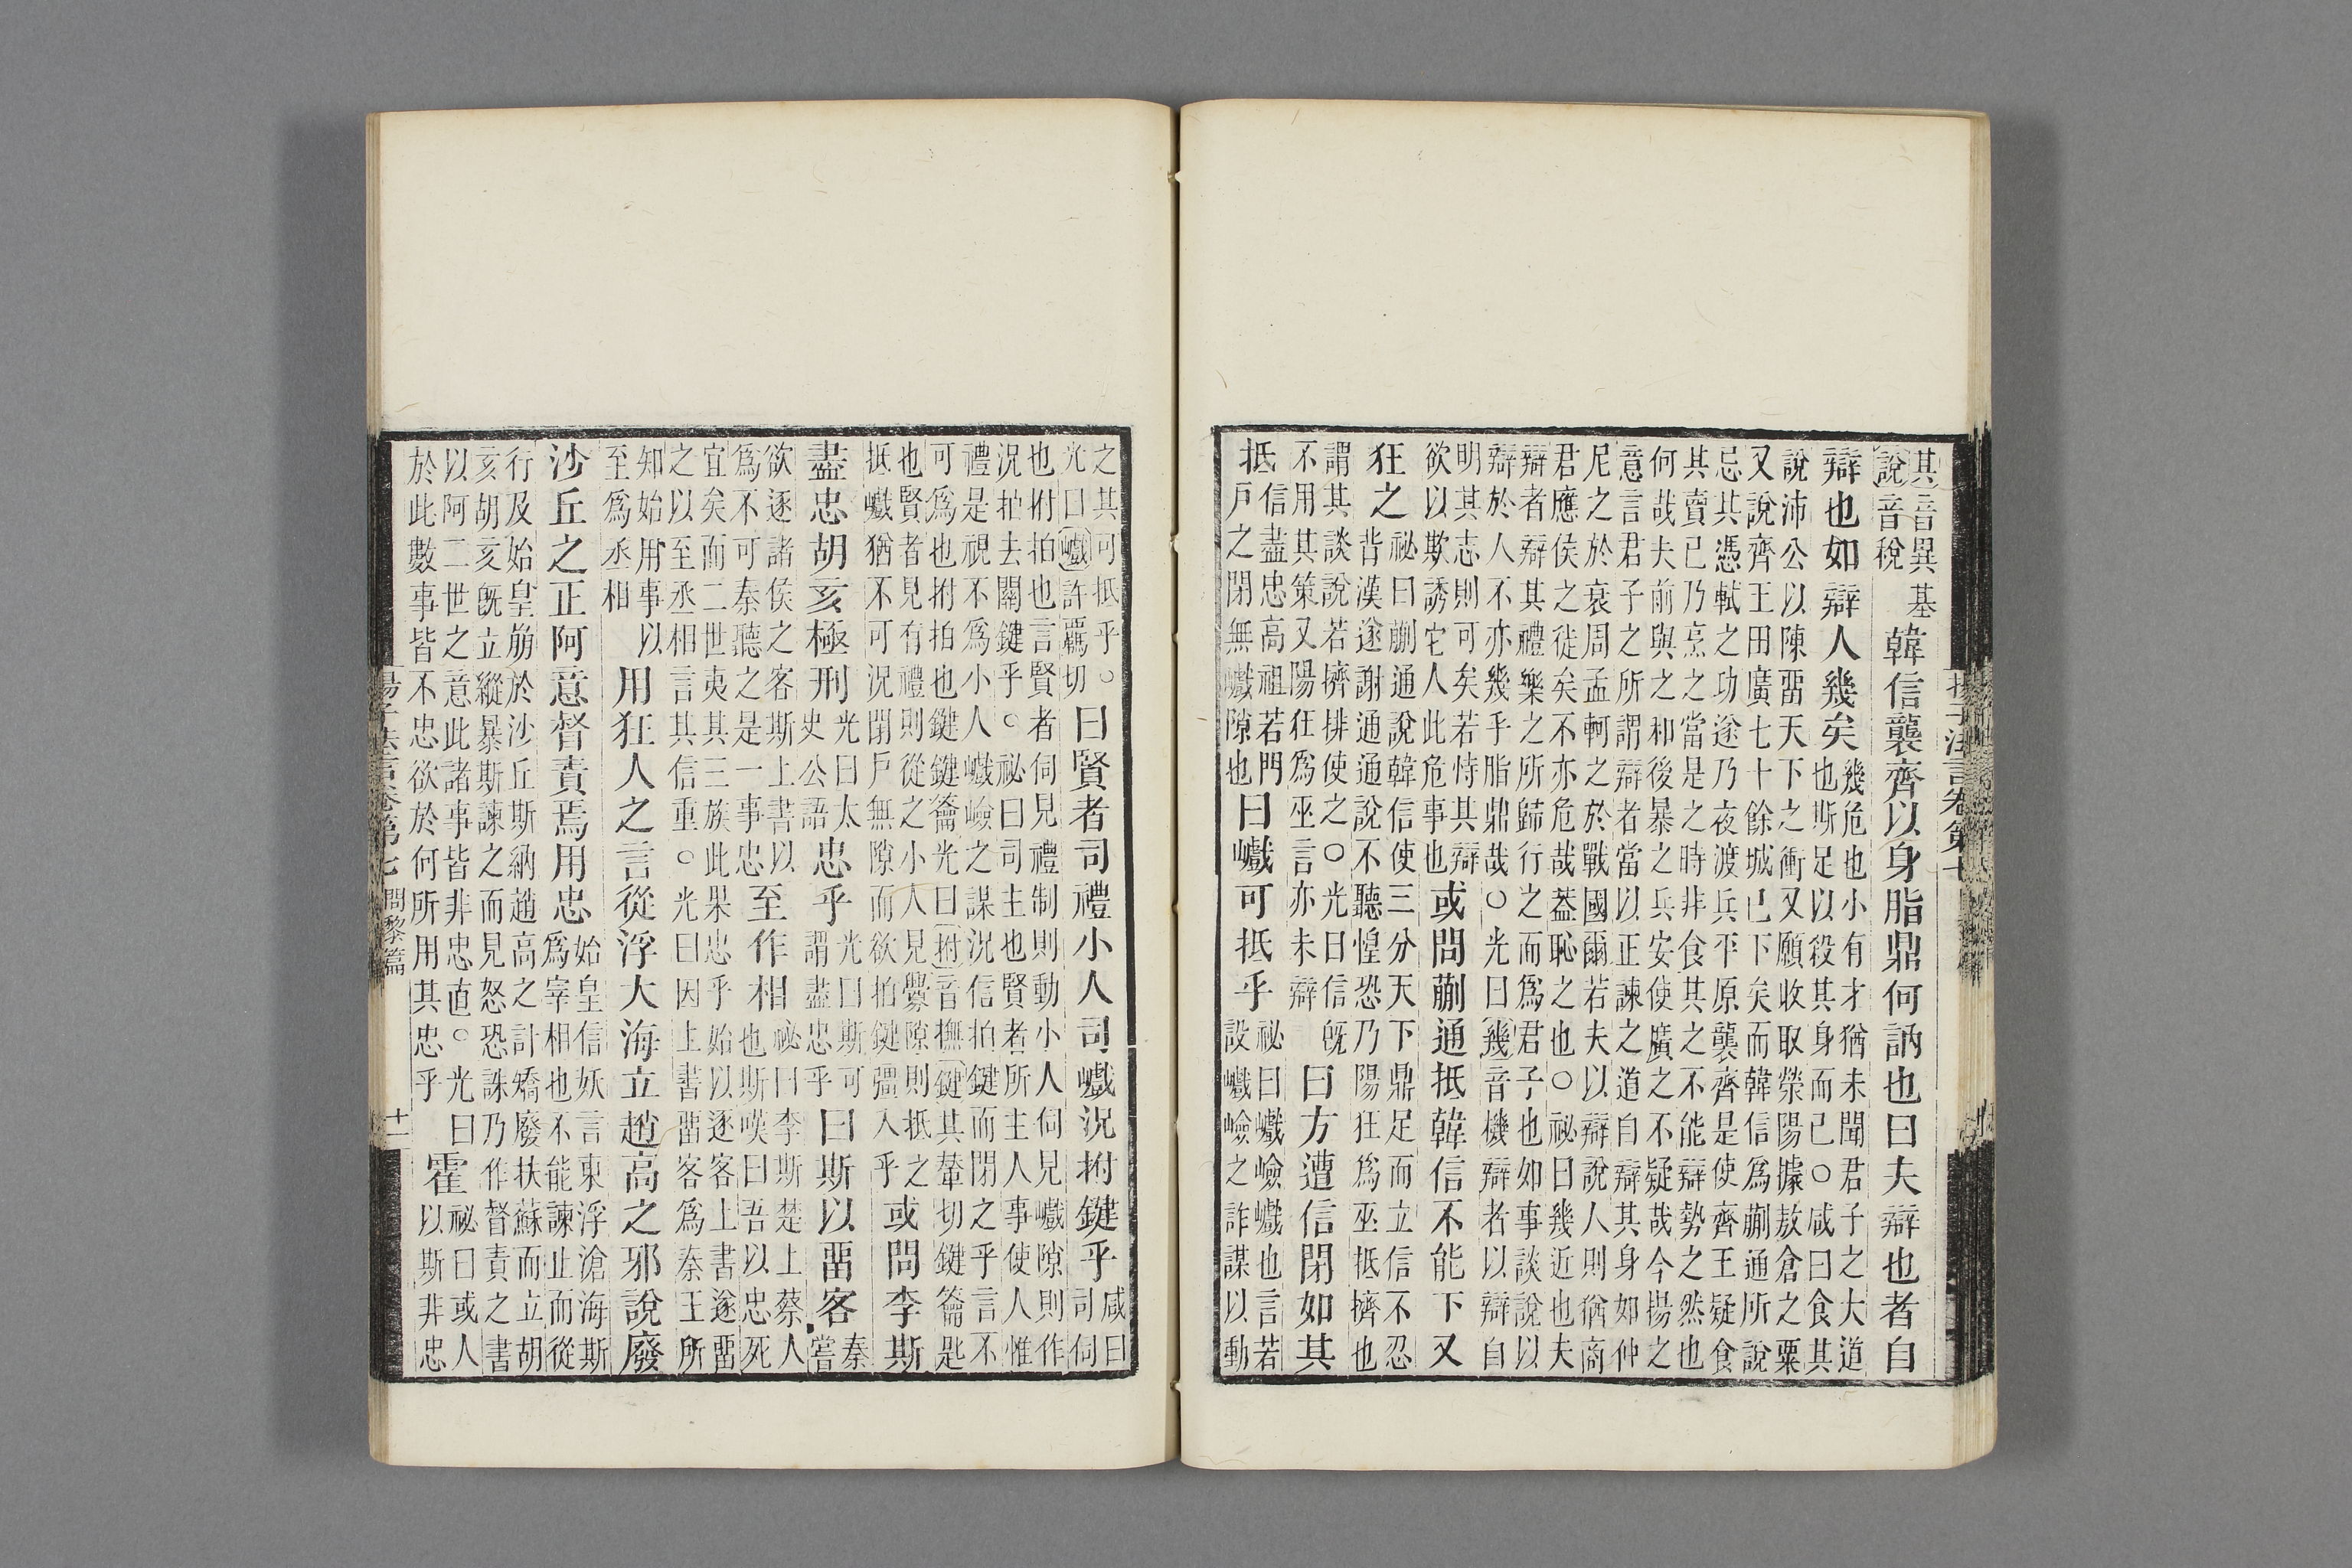 其音異基說音稅韓信襲齊以身脂鼎何訥也曰夫辯也者自
辯也如辯人幾矣幾危也小有才猶未聞君子之大道也斯足以殺其身而已○咸曰食其
說沛公以陳畱天下之衝又願收取滎陽據敖倉之粟
又說齊王田廣七十餘城已下矣而韓信爲蒯通所說
忌其憑軾之功遂乃夜渡兵平原襲齊是使齊王疑食
其賣已乃烹之當是之時非食其之不能辯勢之然也
何哉夫前與之和後暴之兵安使廣之不疑哉今揚之
意言君子之所謂辯者當以正諫之道自辯其身如仲
尼之於衰周孟軻之於戰國爾若夫以辯說人則猶商
君應侯之徒矣不亦危哉葢恥之也○祕曰幾近也夫
辯者辯其禮樂之所歸行之而爲君子也如事談說以
辯於人不亦幾乎脂鼎哉○光曰幾音機辯者以辯自
明其志則可矣若恃其辯欲以欺誘它人此危事也或問蒯通抵韓信不能下又
狂之祕曰蒯通說韓信使三分天下鼎足而立信不忍背漢遂謝通通說不聽惶恐乃陽狂爲巫抵擠也
謂其談說若擠排使之○光曰信旣不用其策又陽狂爲巫言亦未辯曰方遭信閉如其
抵信盡忠高祖若門戶之閉無巇隙也曰巇可抵乎祕曰巇嶮巇也言若設巇嶮之詐謀以動
揚子法言卷第七
之其可抵乎○光曰巇許羈切曰賢者司禮小人司巇況拊鍵乎咸曰司伺
也拊拍也言賢者伺見禮制則動小人伺見巇隙則作
況拍去關鍵乎○祕曰司主也賢者所主人事使人惟
禮是視不爲小人巇嶮之謀況信拍鍵而閉之乎言不
可爲也拊拍也鍵鍵籥光曰拊音撫鍵其輦切鍵籥匙
也賢者見有禮則從之小人見釁隙則抵之抵巇猶不可況閉戶無隙而欲拍鍵彊入乎或問李斯
盡忠胡亥極刑光曰太史公語忠乎光曰斯可謂盡忠乎曰斯以畱客秦嘗
欲逐諸侯之客斯上書以爲不可秦聽之是一事忠至作相祕曰李斯楚上蔡人也斯嘆曰吾以忠死
宜矣而二世夷其三族此果忠乎始以逐客上書遂畱
之以至丞相言其信重○光曰因上書畱客爲秦王所
知始用事以至爲丞相用狂人之言從浮大海立趙高之邪說廢
沙丘之正阿意督責焉用忠始皇信妖言東浮滄海斯爲宰相也不能諫止而從
行及始皇崩於沙丘斯納趙高之計矯廢扶蘇而立胡
亥胡亥旣立縱暴斯諫之而見怒恐誅乃作督責之書
以阿二世之意此諸事皆非忠直○光曰於此數事皆不忠欲於何所用其忠乎霍祕曰或人以斯非忠
揚子法言卷第七 問黎篇 十一